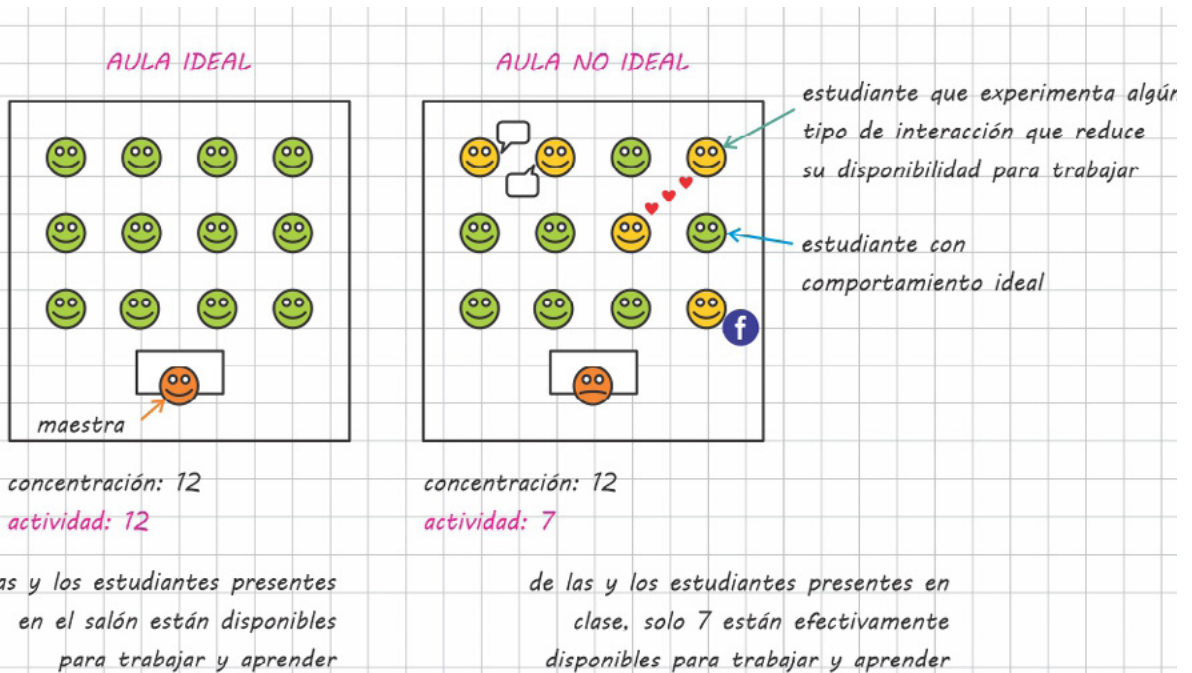 AULA IDEAL
maestra
concentración: 12
actividad: 12
as y los estudiantes presentes
en el salón están disponibles
para trabajar y aprender
AULA NO IDEAL
estudiante que experimenta algún
tipo de interacción que reduce
su disponibilidad para trabajar
estudiante con
comportamiento ideal
f
concentración: 12
actividad: 7
de las y los estudiantes presentes en
clase, solo 7 están efectivamente
disponibles para trabajar y aprender